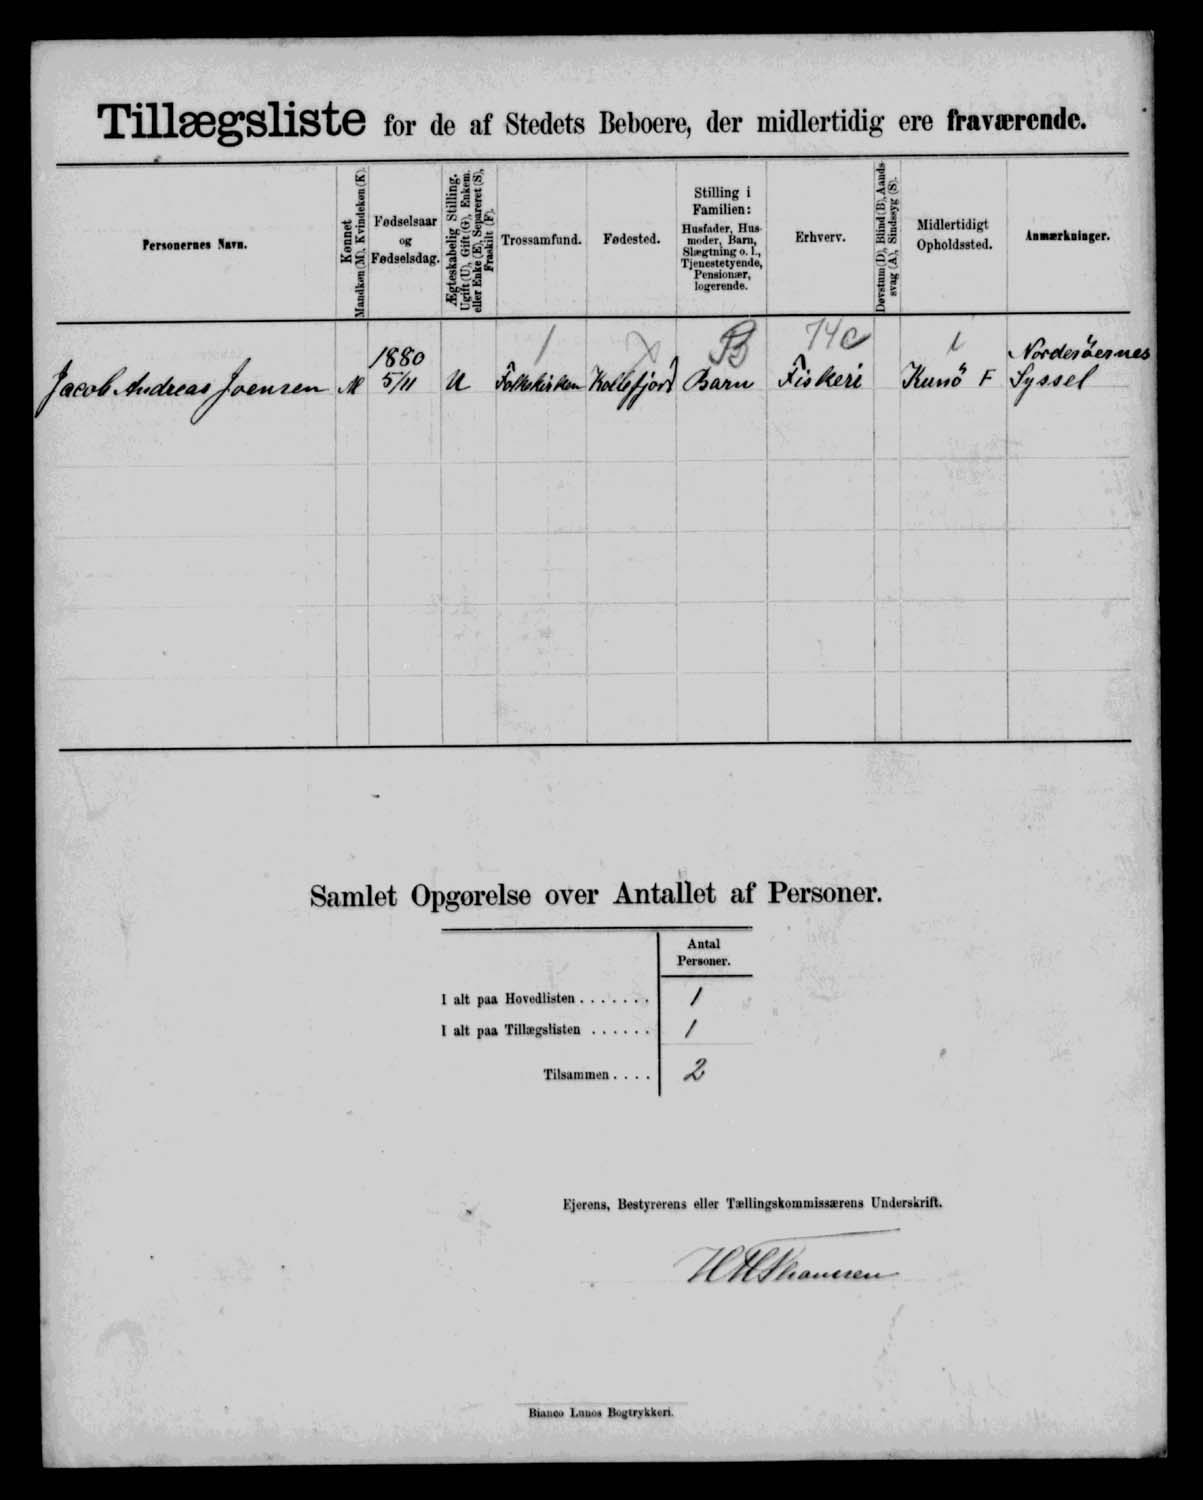 Tillægsliste for de af Stedets Beboere, der midlertidig ere fraværende.
Personernes Navn.
Kønnet
Mandkøn (M), Kvindekøn (K).
Fødselsaar
og
Fødselsdag.
Ægteskabelig Stilling.
Ugift (U), Gift (G), Enkem.
eller Enke (E), Separeret (S),
Fraskilt (F).
Trossamfund.
Fødested.
Stilling i
Familien:
Husfader, Hus-
moder, Barn,
Slægtning o. l.,
Tjenestetyende,
Pensionær,
logerende.
Erhverv.
Døvstum (D), Blind (B), Aands-
svag (A), Sindssyg (S).
Midlertidigt
Opholdssted.
Anmærkninger.
1 B 74c
1880 Norderöernes
Jacob Andreas Joensen M 5/11 U Folkekirken Kollefjord Barn Fiskeri Kunö F Syssel
Samlet Opgørelse over Antallet af Personer.
Antal
Personer.
I alt paa Hovedlisten . . . . . . . 1
I alt paa Tillægslisten . . . . . . 1
Tilsammen . . . . 2
Ejerens, Bestyrerens eller Tællingskommissærens Underskrift.
Bianco Lunos Bogtrykkeri.